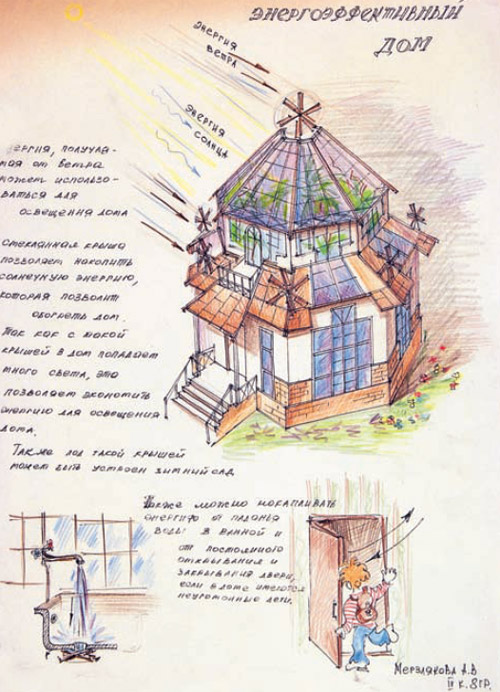 ЭНЕРГОЭФФЕКТИВНЫЙ
ДОМ
ЭНЕРГИЯ
ВЕТРА
ЭНЕРГИЯ
СОЛНЦА
ЭРГИЯ, ПОЛУЧАЕ-
МАЯ ОТ ВЕТРА
МОЖЕТ ИСПОЛЬЗО-
ВАТЬСЯ ДЛЯ
ОСВЕЩЕНИЯ ДОМА
СТЕКЛЯННАЯ КРЫША
ПОЗВОЛЯЕТ НАКОПИТЬ
СОЛНЕЧНУЮ ЭНЕРГИЮ,
КОТОРАЯ ПОЗВОЛИТ
ОБОГРЕТЬ ДОМ.
ТАК КАК С ТАКОЙ
КРЫШЕЙ В ДОМ ПОПАДАЕТ
МНОГО СВЕТА, ЭТО
ПОЗВОЛЯЕТ ЭКОНОМИТЬ
ЭНЕРГИЮ ДЛЯ ОСВЕЩЕНИЯ
ДОМА.
ТАКЖЕ ПОД ТАКОЙ КРЫШЕЙ
МОЖЕТ БЫТЬ УСТРОЕН ЗИМНИЙ САД
ТАКЖЕ МОЖНО НАКАПЛИВАТЬ
ЭНЕРГИЮ ОТ ПАДЕНЬЯ
ВОДЫ В ВАННОЙ И
ОТ ПОСТОЯННОГО
ОТКРЫВАНИЯ И
ЗАКРЫВАНИЯ ДВЕРИ,
ЕСЛИ В ДОМЕ ИМЕЮТСЯ
НЕУГОМОННЫЕ ДЕТИ.
МЕРЗЛЯКОВА А.В
II К. 8 ГР.